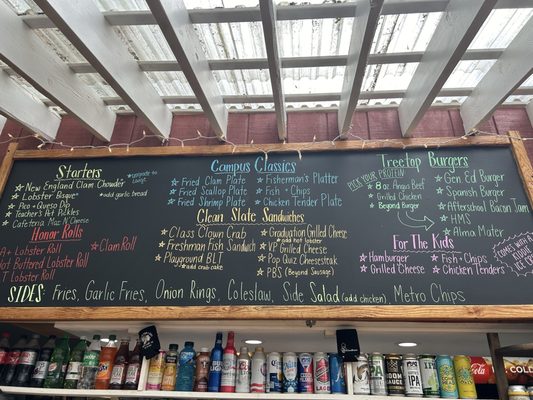 Starters
upgrade to
New England Clam Chowder
Lobster Bisque
add garlic bread
Pico + Queso Dip
Teacher's Hot Pickles
Cafeteria Mac N Cheese
Honor Rolls
A+ Lobster Roll
Clam Roll
Hot Buttered Lobster Roll
LT Lobster Roll
Campus Classics
Fried Clam Plate
Fisherman's Platter
Fried Scallop Plate
Fish + Chips
Fried Shrimp Plate
Chicken Tender Plate
Clean Slate Sandwiches
Class Clown Crab
Graduation Grilled Cheese
add hot lobster
Freshman Fish Sandwich
VP Grilled Cheese
Playground BLT
Pop Quiz Cheesesteak
add crab cake
PBS (Beyond Sausage)
Treetop Burgers
PICK YOUR PROTEIN
8 oz. Angus Beef
Gen. Ed Burger
Grilled Chicken
Spanish Burger
Beyond Burger
Afterschool Bacon Jam
HMS
Alma Mater
For The Kids
Hamburger
Fish + Chips
Grilled Cheese
Chicken Tenders
COMES WITH
SIDES: Fries, Garlic Fries, Onion Rings, Coleslaw, Side Salad (add chicken) Metro Chips
IPA